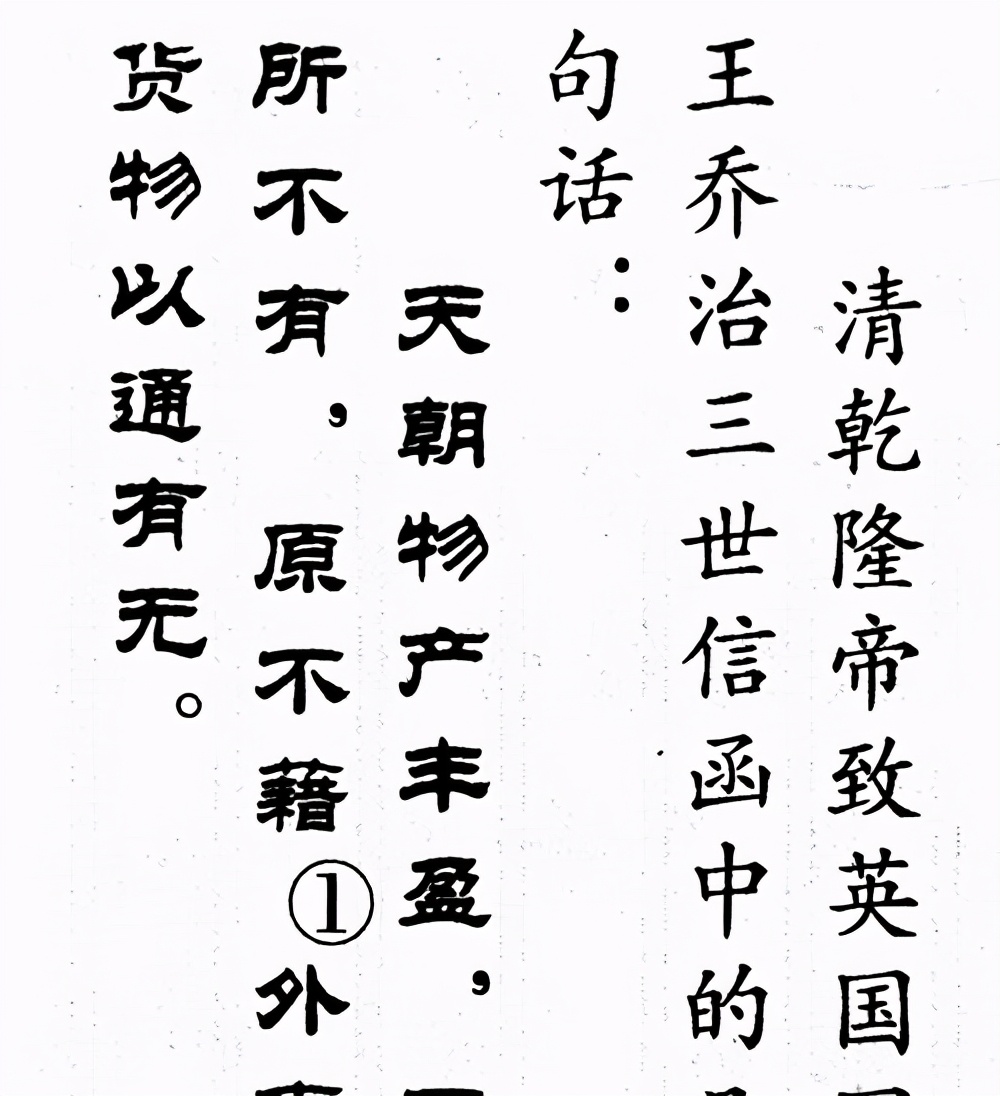 清乾隆帝致英国
王乔治三世信函中的
句话：
天朝物产丰盈，
所不有，原不藉①外
货物以通有无。